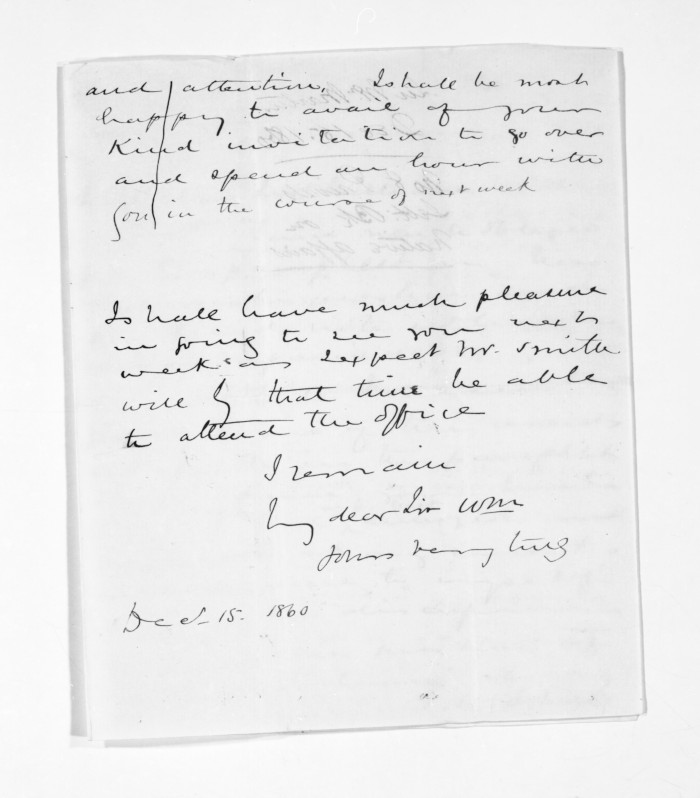 and attention. I shall be most
happy to avail of your
Kind invitation to go over
and spend an hour with
you in the course of next week
I shall have much pleasure
in going to see you next
week as I expect Mr. Smith
will by that time be able
to attend the office
I remain
My dear Sir Wm
Yours very truly
Dec 15. 1860